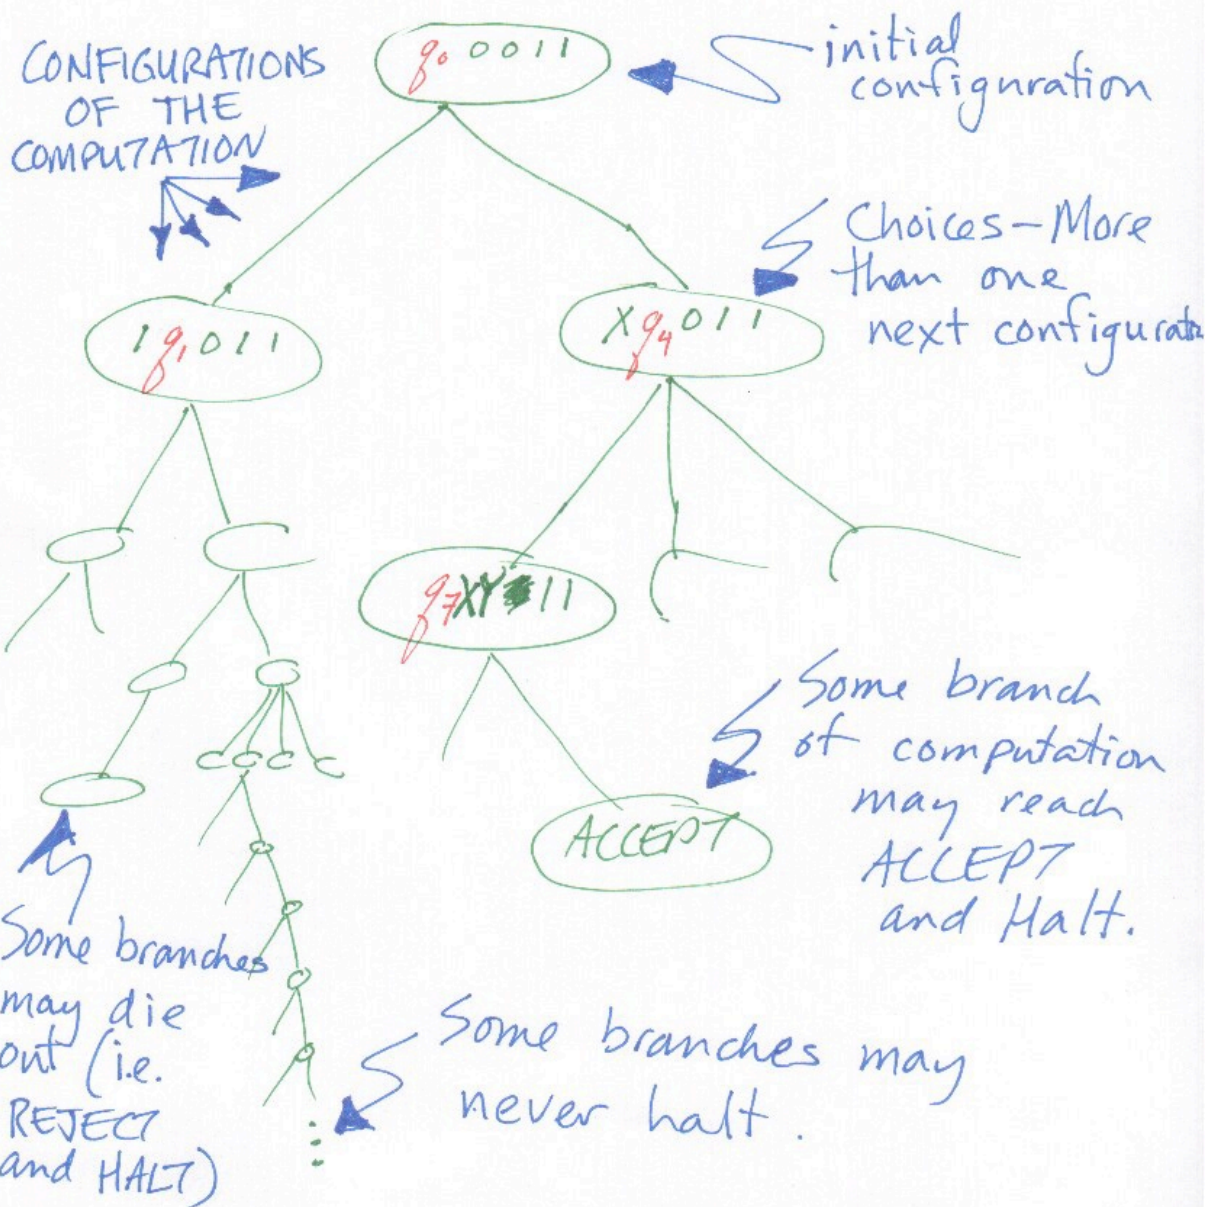 CONFIGURATIONS
OF THE
COMPUTATION
q₀ 0 0 1 1
initial
configuration
Choices – More
than one
next configurat
1 q₁ 0 1 1
X q₄ 0 1 1
q₇ X Y 1 1
C C C C
Some branch
of computation
may reach
ACCEPT
and Halt.
ACCEPT
Some branches
may die
out (i.e.
REJECT
and HALT)
Some branches may
never halt.